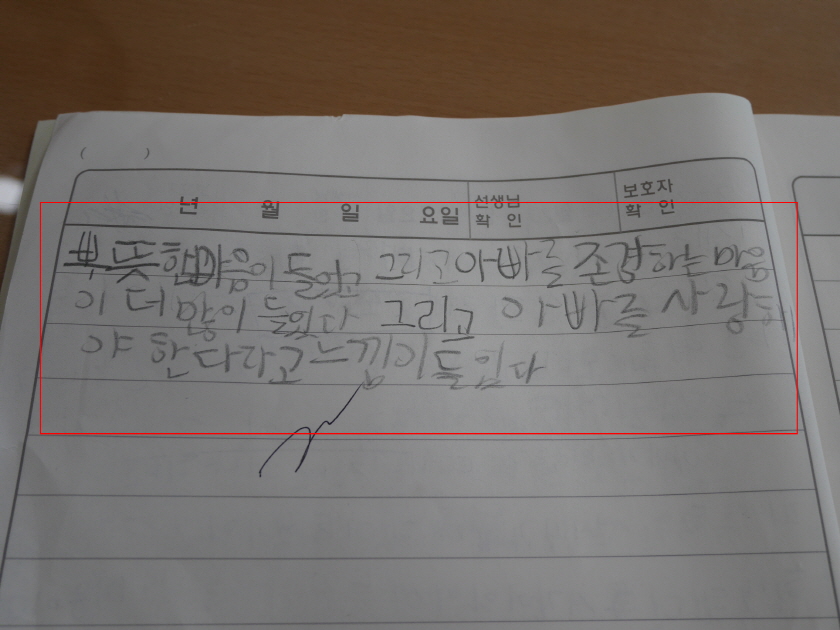 ( )
년 월 일 요일 선생님 확 인 보호자 확 인
뿌듯한마음이들었고 그리고아빠를존경하는마음
이 더많이 들었다 그리고 아빠를사랑해
야 한다라고느낌이들었다